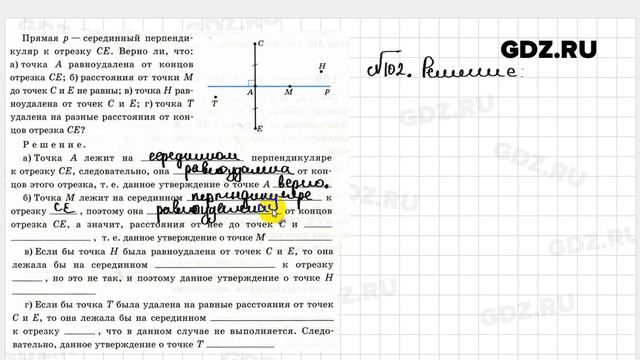 GDZ.RU
Прямая p — серединный перпенди-
куляр к отрезку CE. Верно ли, что:
а) точка A равноудалена от концов
отрезка CE; б) расстояния от точки M
до точек C и E не равны; в) точка H рав-
ноудалена от точек C и E; г) точка T
удалена на разные расстояния от кон-
цов отрезка CE?
C
H
A
M
p
T
E
№102. Решение:
Решение.
а) Точка A лежит на серединном перпендикуляре
к отрезку CE, следовательно, она равноудалена от кон-
цов этого отрезка, т. е. данное утверждение о точке A верно.
б) Точка M лежит на серединном перпендикуляре к
отрезку CE, поэтому она равноудалена от концов
отрезка CE, а значит, расстояния от неё до точек C и
, т. е. данное утверждение о точке M
в) Если бы точка H была равноудалена от точек C и E, то она
лежала бы на серединном к отрезку
, но это не так, и поэтому данное утверждение о точке H
г) Если бы точка T была удалена на равные расстояния от точек
C и E, то она лежала бы на серединном
к отрезку , что в данном случае не выполняется. Следо-
вательно, данное утверждение о точке T